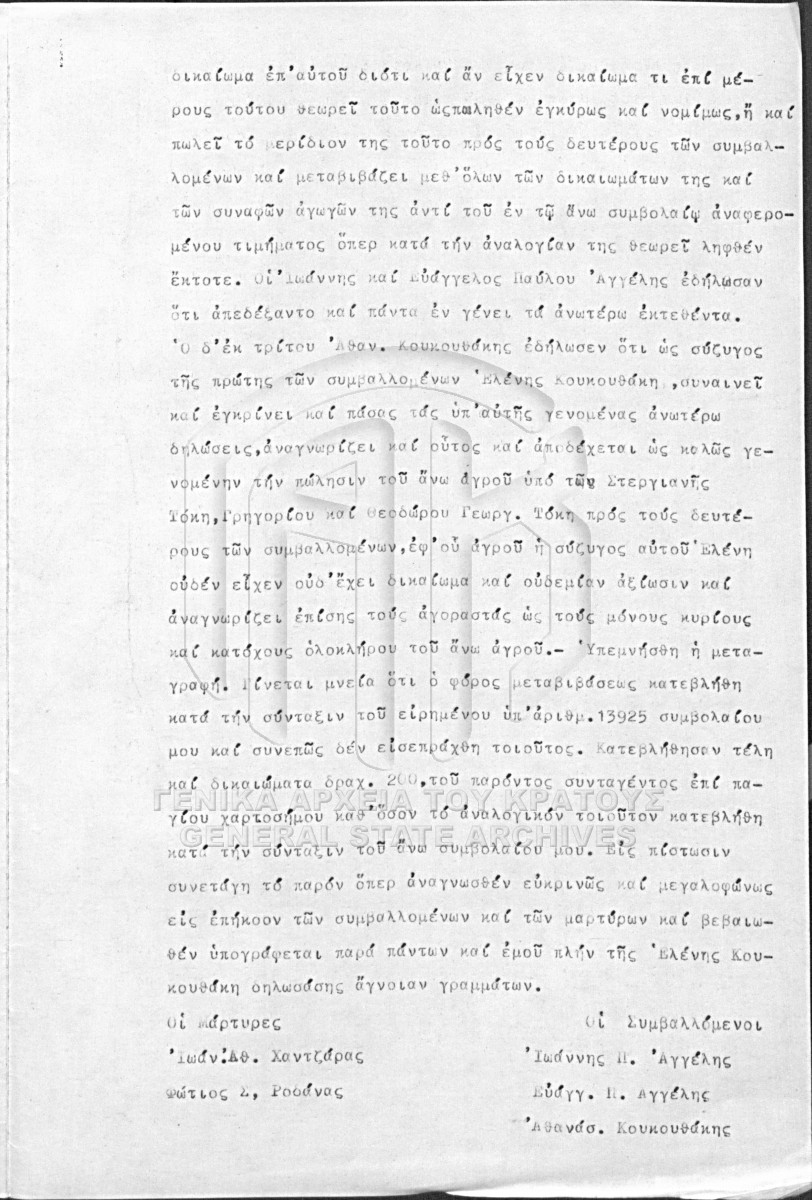 δικαίωμα ἐπ'αὐτοῦ διότι καί ἄν εἶχεν δικαίωμα τι ἐπί μέ-
ρους τούτου θεωρεῖ τοῦτο ὡςπωληθέν ἐγκύρως καί νομίμως,ἤ καί
πωλεῖ τό μερίδιον της τοῦτο πρός τούς δευτέρους τῶν συμβαλ-
λομένων καί μεταβιβάζει μεθ'ὅλων τῶν δικαιωμάτων της καί
τῶν συναφῶν ἀγωγῶν της ἀντί τοῦ ἐν τῷ ἄνω συμβολαίῳ ἀναφερο-
μένου τιμήματος ὅπερ κατά τήν ἀναλογίαν της θεωρεῖ ληφθέν
ἔκτοτε. Οἱ Ἰωάννης καί Εὐάγγελος Παύλου Ἀγγέλης ἐδήλωσαν
ὅτι ἀπεδέξαντο καί πάντα ἐν γένει τά ἀνωτέρω ἐκτεθέντα.
Ὁ δ'ἐκ τρίτου Ἀθαν. Κουκουθάκης ἐδήλωσεν ὅτι ὡς σύζυγος
τῆς πρώτης τῶν συμβαλλομένων Ἑλένης Κουκουθάκη ,συναινεῖ
καί ἐγκρίνει καί πάσας τάς ὑπ'αὐτῆς γενομένας ἀνωτέρω
δηλώσεις,ἀναγνωρίζει καί οὗτος καί ἀποδέχεται ὡς καλῶς γε-
νομένην τήν πώλησιν τοῦ ἄνω ἀγροῦ ὑπό τῶν Στεργιανῆς
Τόκη,Γρηγορίου καί Θεοδώρου Γεωργ. Τόκη πρός τούς δευτέ-
ρους τῶν συμβαλλομένων,ἐφ'οὗ ἀγροῦ ἡ σύζυγος αὐτοῦ Ἑλένη
οὐδέν εἶχεν οὐδ'ἔχει δικαίωμα καί οὐδεμίαν ἀξίωσιν καί
ἀναγνωρίζει ἐπίσης τούς ἀγοραστάς ὡς τούς μόνους κυρίους
καί κατόχους ὁλοκλήρου τοῦ ἄνω ἀγροῦ.- Ὑπεμνήσθη ἡ μετα-
γραφή. Γίνεται μνεία ὅτι ὁ φόρος μεταβιβάσεως κατεβλήθη
κατά τήν σύνταξιν τοῦ εἰρημένου ὑπ'ἀριθμ.13925 συμβολαίου
μου καί συνεπῶς δέν εἰσεπράχθη τοιοῦτος. Κατεβλήθησαν τέλη
καί δικαιώματα δραχ. 200,τοῦ παρόντος συνταγέντος ἐπί πα-
γίου χαρτοσήμου καθ'ὅσον τό ἀναλογικόν τοιοῦτον κατεβλήθη
ΓΕΝΙΚΑ ΑΡΧΕΙΑ ΤΟΥ ΚΡΑΤΟΥΣ
GENERAL STATE ARCHIVES
κατά τήν σύνταξιν τοῦ ἄνω συμβολαίου μου. Εἰς πίστωσιν
συνετάγη τό παρόν ὅπερ ἀναγνωσθέν εὐκρινῶς καί μεγαλοφώνως
εἰς ἐπήκοον τῶν συμβαλλομένων καί τῶν μαρτύρων καί βεβαιω-
θέν ὑπογράφεται παρά πάντων καί ἐμοῦ πλήν τῆς Ἑλένης Κου-
κουθάκη δηλωσάσης ἄγνοιαν γραμμάτων.
Οἱ Μάρτυρες Οἱ Συμβαλλόμενοι
Ἰωάν.Ἀθ. Χαντζάρας Ἰωάννης Π. Ἀγγέλης
Φώτιος Σ, Ροδάνας Εὐάγγ. Π. Αγγέλης
Ἀθανάσ. Κουκουθάκης